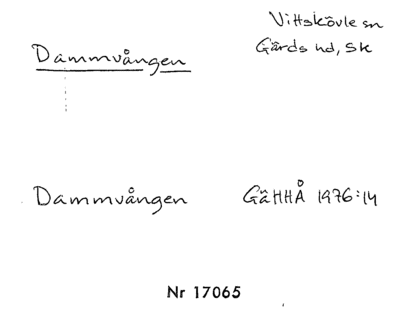 Vittskövle sn
Gärds hd, Sk
Dammvången
Dammvången GäHHÅ 1976:14
Nr 17065